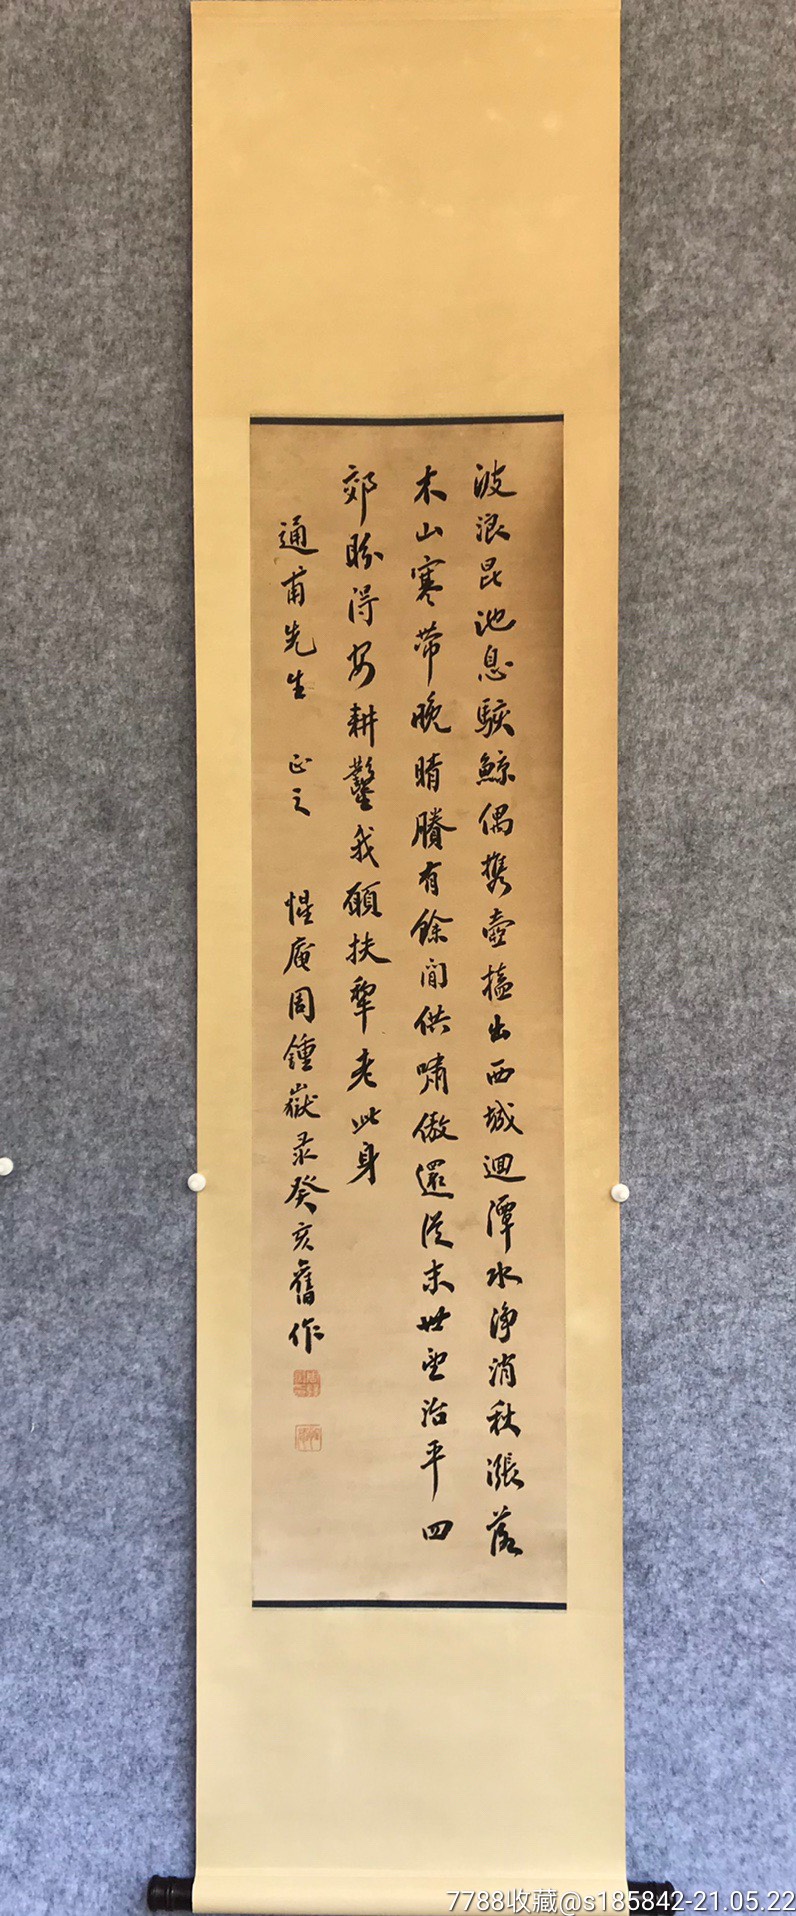 波浪昆池息駭鯨偶攜壺榼出西城迴潭水净消秋漲落
木山寒带晚晴賸有餘閒供嘯傲還從末世望治平四
郊盼得安耕鑿我願扶犂老此身
通甫先生 正之 惺庵周鍾嶽录癸亥舊作
7788收藏@s185842-21.05.22